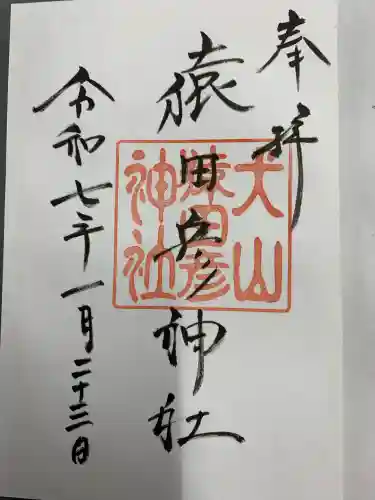 奉拝
猿田彦神社
令和七年一月二十三日
犬山
猿田彦
神社